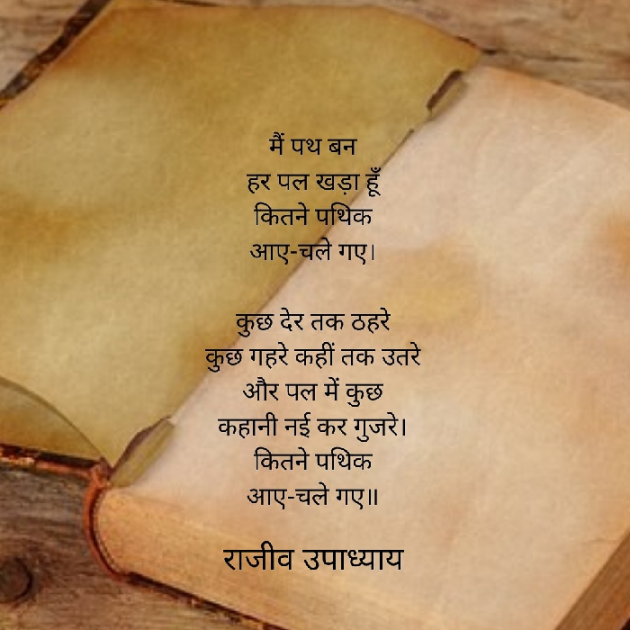 मैं पथ बन
हर पल खड़ा हूँ
कितने पथिक
आए-चले गए।
कुछ देर तक ठहरे
कुछ गहरे कहीं तक उतरे
और पल में कुछ
कहानी नई कर गुजरे।
कितने पथिक
आए-चले गए॥
राजीव उपाध्याय